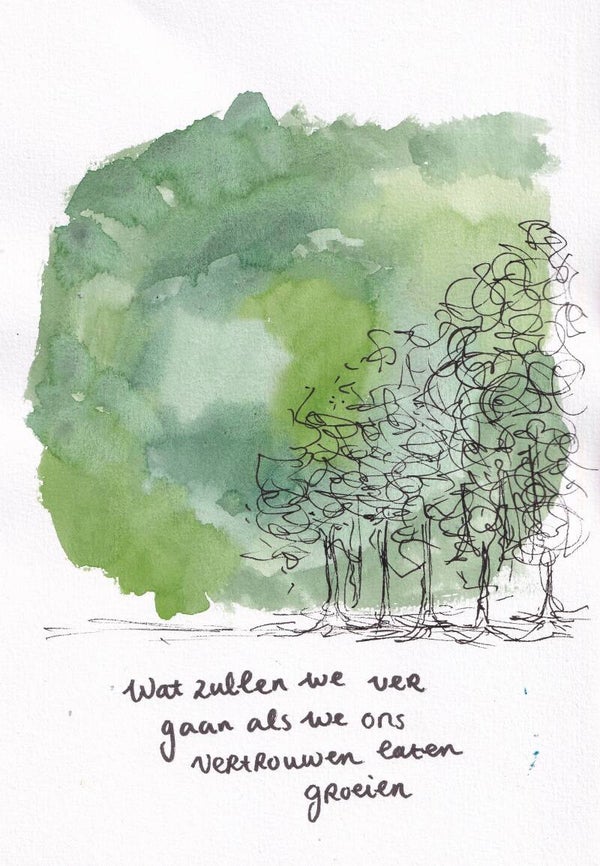 Wat zullen we ver
gaan als we ons
vertrouwen laten
groeien